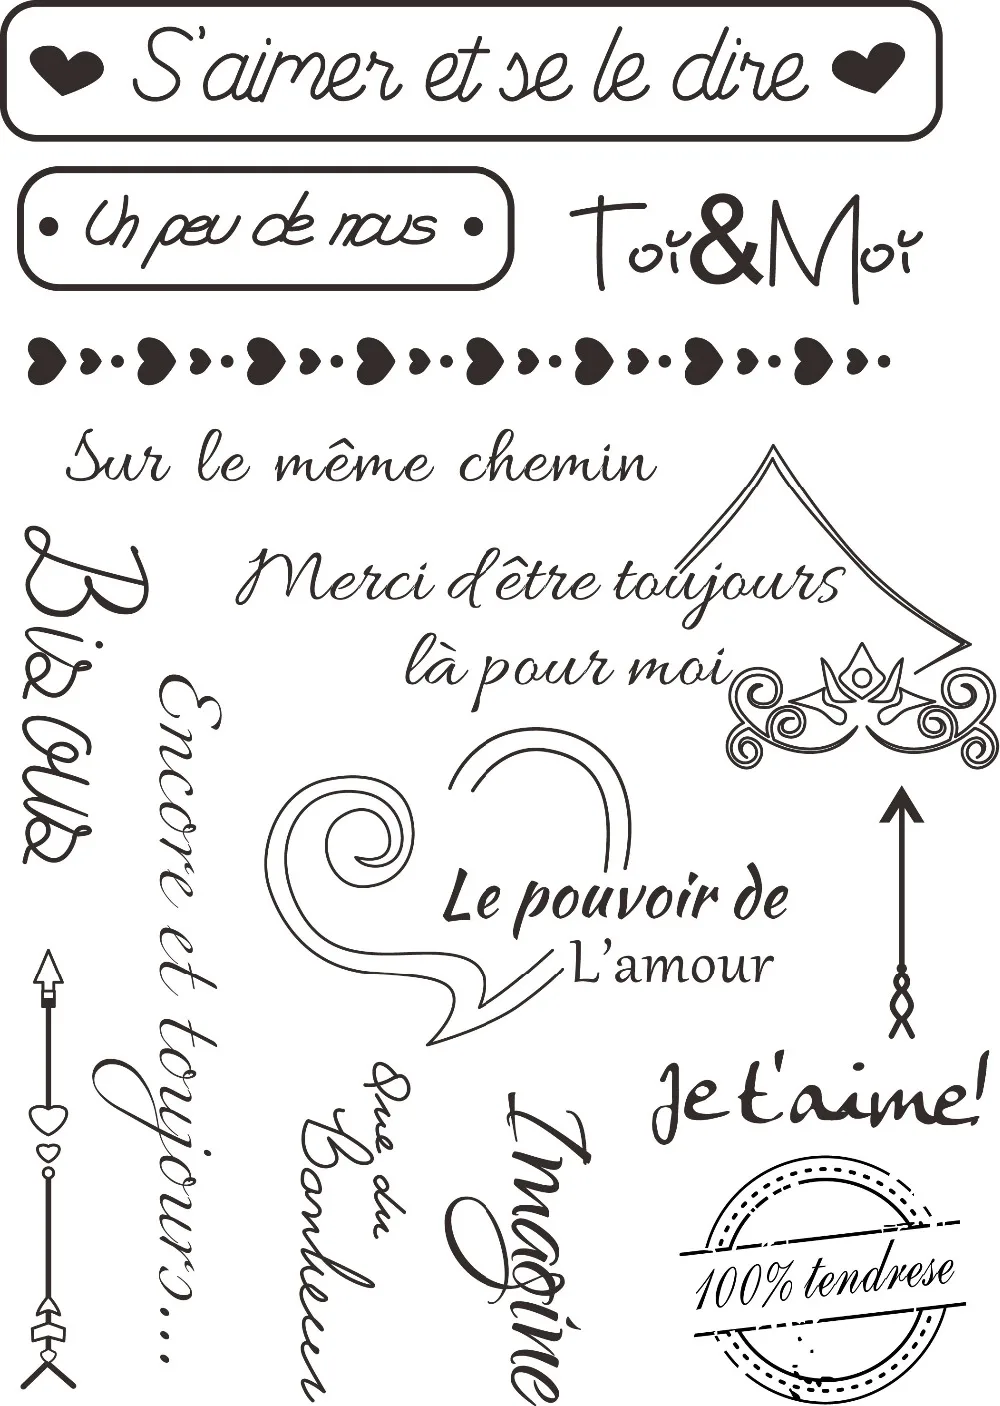 S'aimer et se le dire
Un peu de nous
Toi&Moi
Sur le même chemin
Merci d'être toujours
là pour moi
Bisous
Encore et toujours...
Le pouvoir de
L'amour
Je t'aime!
Que du
Bonheur
Imagine
100% tendrese